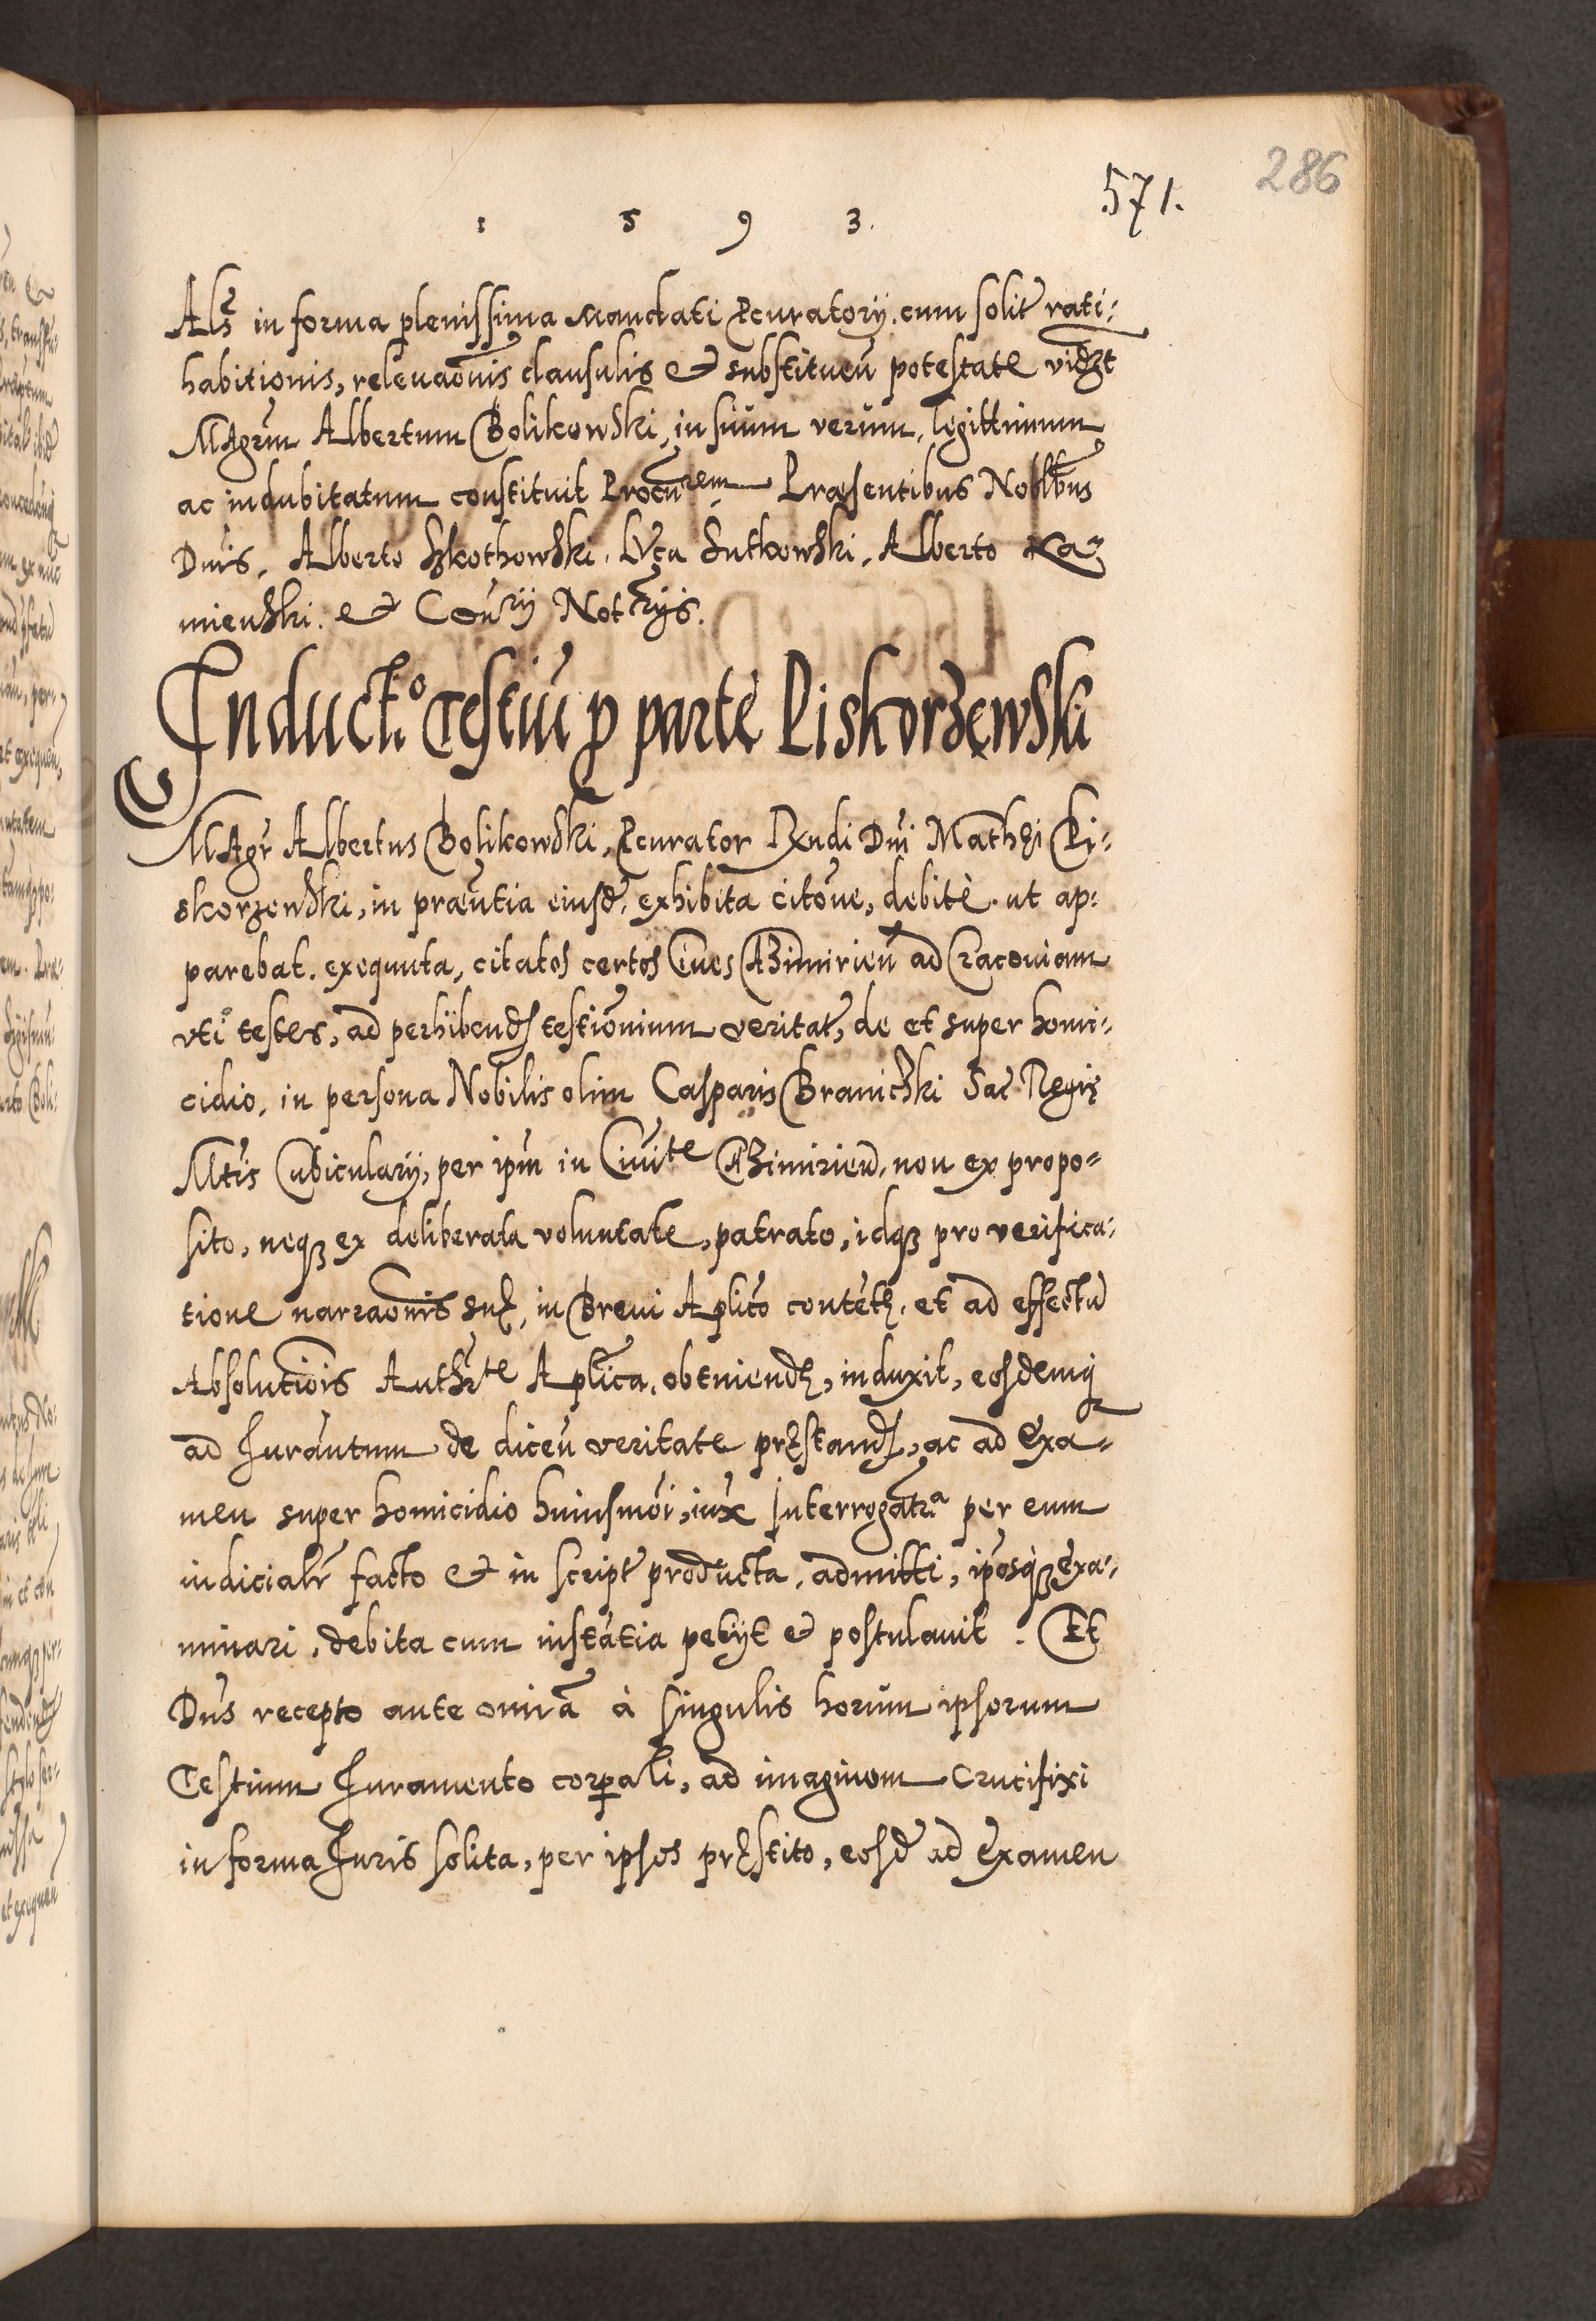 286
571.
1 5 9 3.
Als in forma plenissima Mandati Pcuratorij. cum solit rati-
habitionis, releuaõnis clausulis et substitueñ potestate videlt
MAgrũm Albertum Bolikowski, in suum verum, legittimum
ac indubitatum constituit Procurem Præsentibus Nobilbus
Dnis, Alberto Szkothowski. Luca Sutkowski, Alberto Ka-
mienski. et Coñrij Notrijs.
Inducto. Testiũ p parte Piskorzewski
MAgr Albertus Bolikowski, Pcurator Rxndi Dni Mathęi Pi-
skorzewski, in præñtia eiusd, exhibita citõne, debitè. ut ap-
parebat. exequuta, citatos certos Ciues Cazimirieñ ad Cracouiam
vti testes, ad perhibend testiõnium veritat, de et super homi-
cidio, in persona Nobilis olim Casparis Branicski Sac Regię
Mtis Cubicularij, per ipm in Ciuite Cazimirieñ, non ex propo-
sito, neqz ex deliberata voluntate, patrato, idqz pro verifica-
tione narraõnis suę, in Breui Aplico contetę, et ad effectũ
Absolutiõis Authte Aplica, obtiniendę, induxit, eosdemq
ad Iuramtum de diceñ veritate pręstand, ac ad Exa-
men super homicidio huiusmõi, iux Interrogatra per eum
iudicialr facto et in script producta, admitti, ipõsqz exa-
minari, debita cum instãtia petijt et postulauit. Et
Dns recepto ante omĩa à singulis horum ipsorum
Testium Iuramento corpali, ad imaginem Crucifixi
in forma Iuris solita, per ipsos pręstito, eosd ad Examen